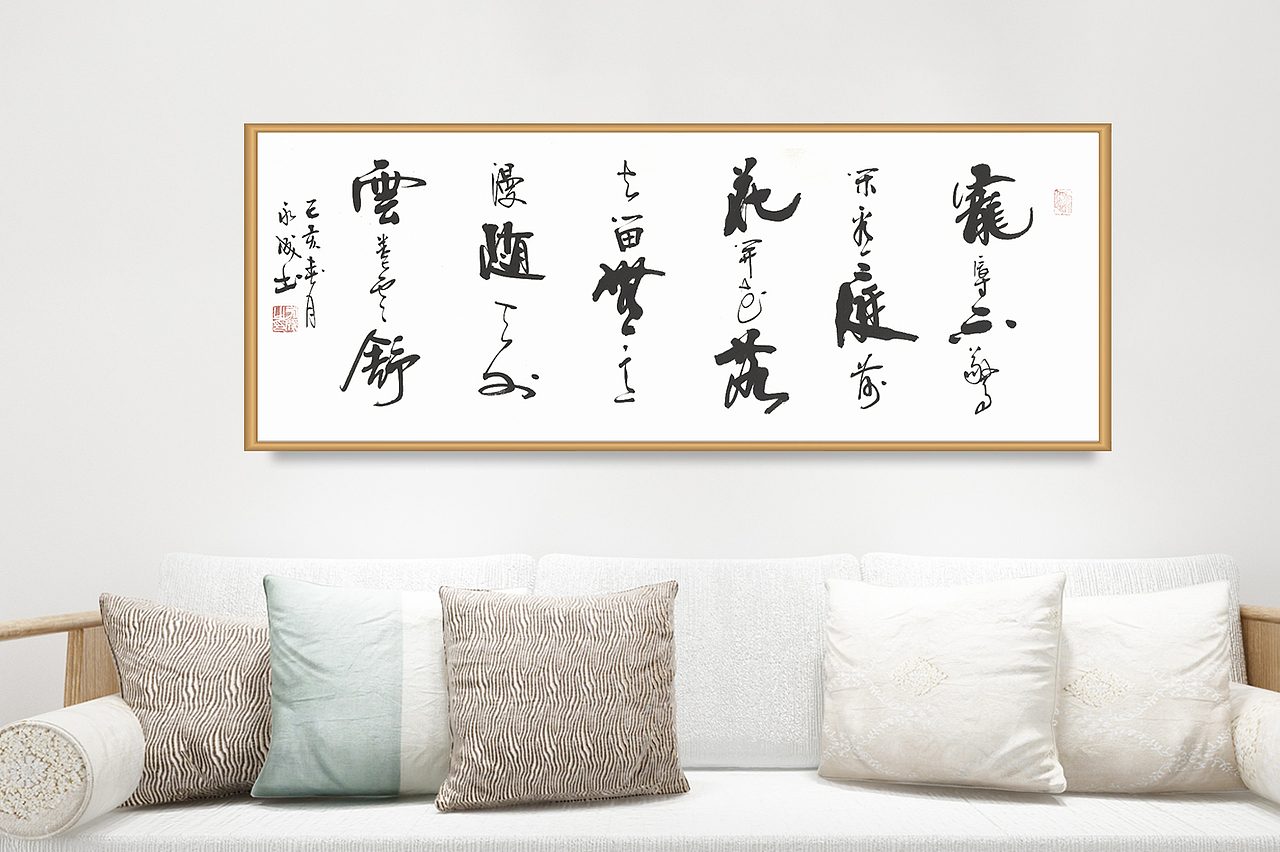 寵辱不驚
閑看庭前
花開花落
去留無意
漫随天外
雲卷云舒
己亥春月
永成书